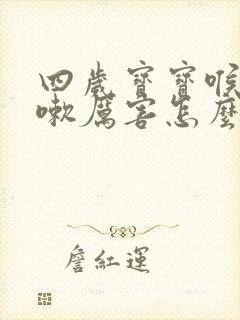 四歲寶寶喉
嗽厲害怎麼
詹紅運